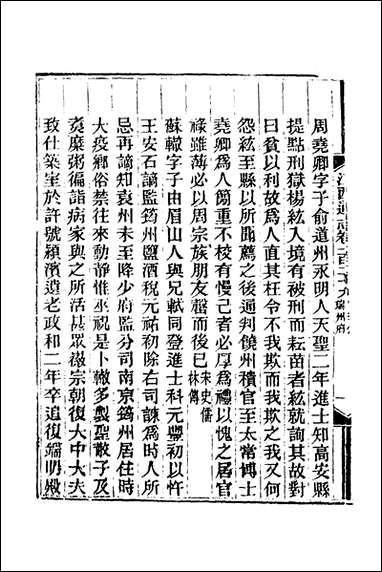 周堯卿字子俞道州永明人天聖二年進士知高安縣
提點刑獄楊紘入境有被刑而耘苗者紘就詢其故對
曰貧以利故為人直其枉令不我欺而我欺之我又何
怨紘至縣以所聞薦之後通判饒州積官至太常博士
堯卿為人簡重不校有慢己者必厚為禮以愧之居官
祿雖薄必以周宗族朋友罄而後已宋史儒林傳
蘇轍字子由眉山人與兄軾同登進士科元豐初以忤
王安石謫監筠州鹽酒稅元祐初除右司諫為時人所
忌再謫知袁州未至降少府監分司南京筠州居住時
大疫鄉俗禁往來動靜惟巫祝是卜轍多製聖散子及
煑糜粥徧詣病家與之所活甚眾徽宗朝復大中大夫
致仕築室於許號潁濱遺老政和二年卒追復端明殿
江西通志卷一百二十九 瑞州府 一